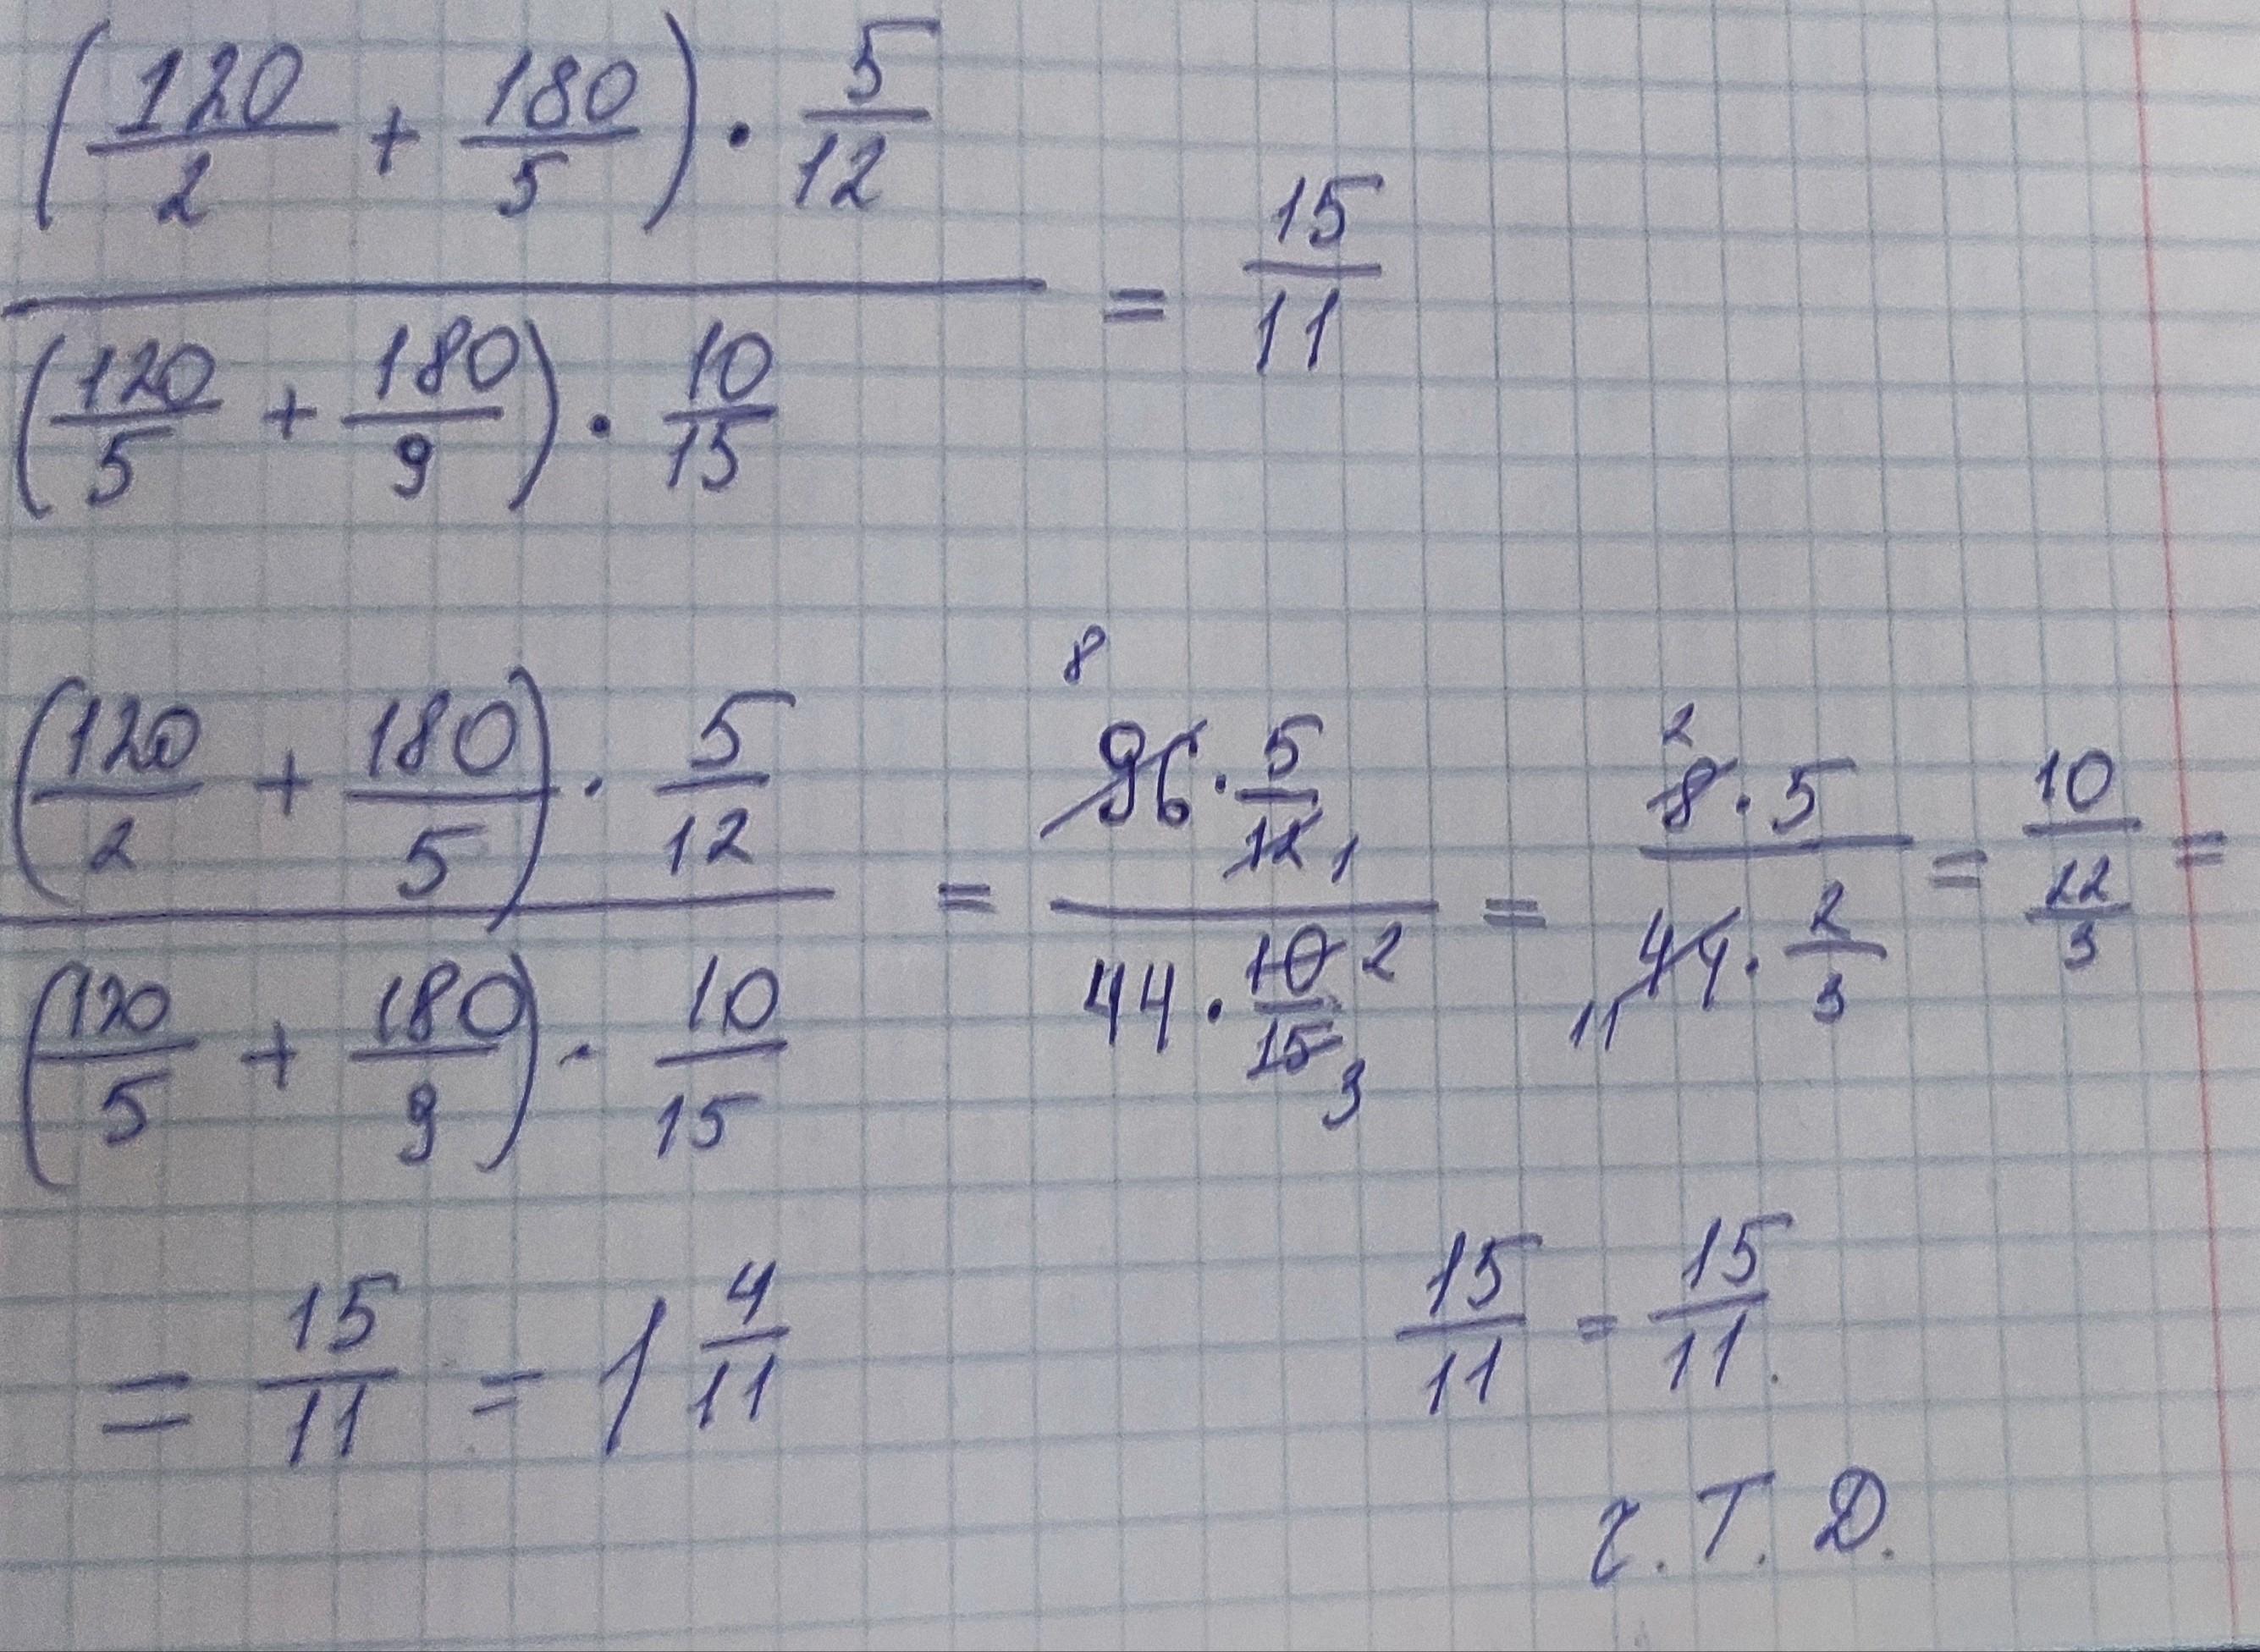 (120/2 + 180/5) · 5/12
(120/5 + 180/9) · 10/15
= 15/11
(120/2 + 180/5) · 5/12
(120/5 + 180/9) · 10/15
= 8 96 · 5/12 1
44 · 10/15 2 3
= 2 8 · 5
11 44 · 2/3
= 10
22/3
=
= 15/11 = 1 4/11
15/11 = 15/11.
ч. Т. Д.